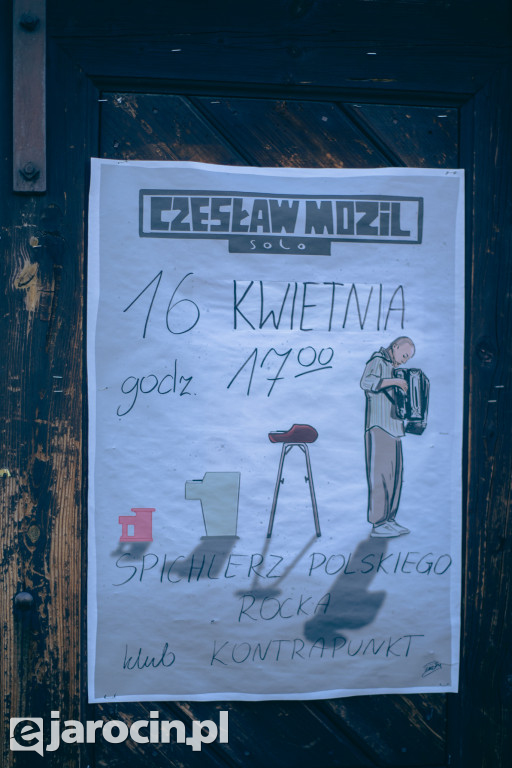 CZESŁAW MOZIL
SOLO
16 KWIETNIA
godz. 17⁰⁰
SPICHLERZ POLSKIEGO
ROCKA
klub KONTRAPUNKT
ejarocin.pl